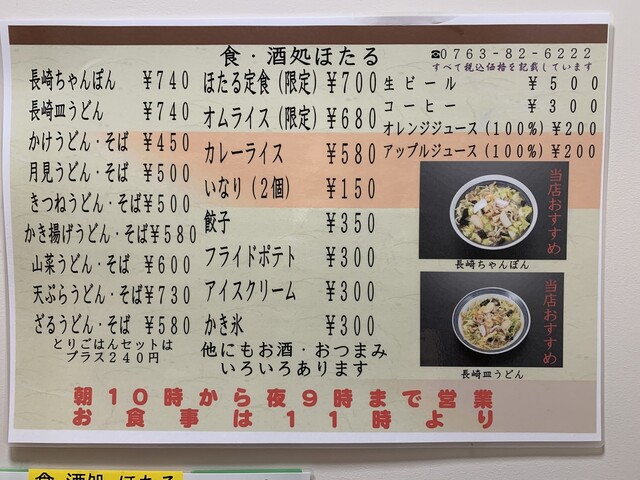 食・酒処ほたる
☎0763-82-6222
すべて税込価格を記載しています
長崎ちゃんぽん ¥740
長崎皿うどん ¥740
かけうどん・そば ¥450
月見うどん・そば ¥500
きつねうどん・そば ¥500
かき揚げうどん・そば ¥580
山菜うどん・そば ¥600
天ぷらうどん・そば ¥730
ざるうどん・そば ¥580
とりごはんセットは
プラス240円
ほたる定食(限定) ¥700
オムライス(限定) ¥680
カレーライス ¥580
いなり(2個) ¥150
餃子 ¥350
フライドポテト ¥300
アイスクリーム ¥300
かき氷 ¥300
他にもお酒・おつまみ
いろいろあります
生ビール ¥500
コーヒー ¥300
オレンジジュース(100%) ¥200
アップルジュース(100%) ¥200
当店おすすめ
長崎ちゃんぽん
当店おすすめ
長崎皿うどん
朝10時から夜9時まで営業
お食事は11時より
食・酒処 ほたる